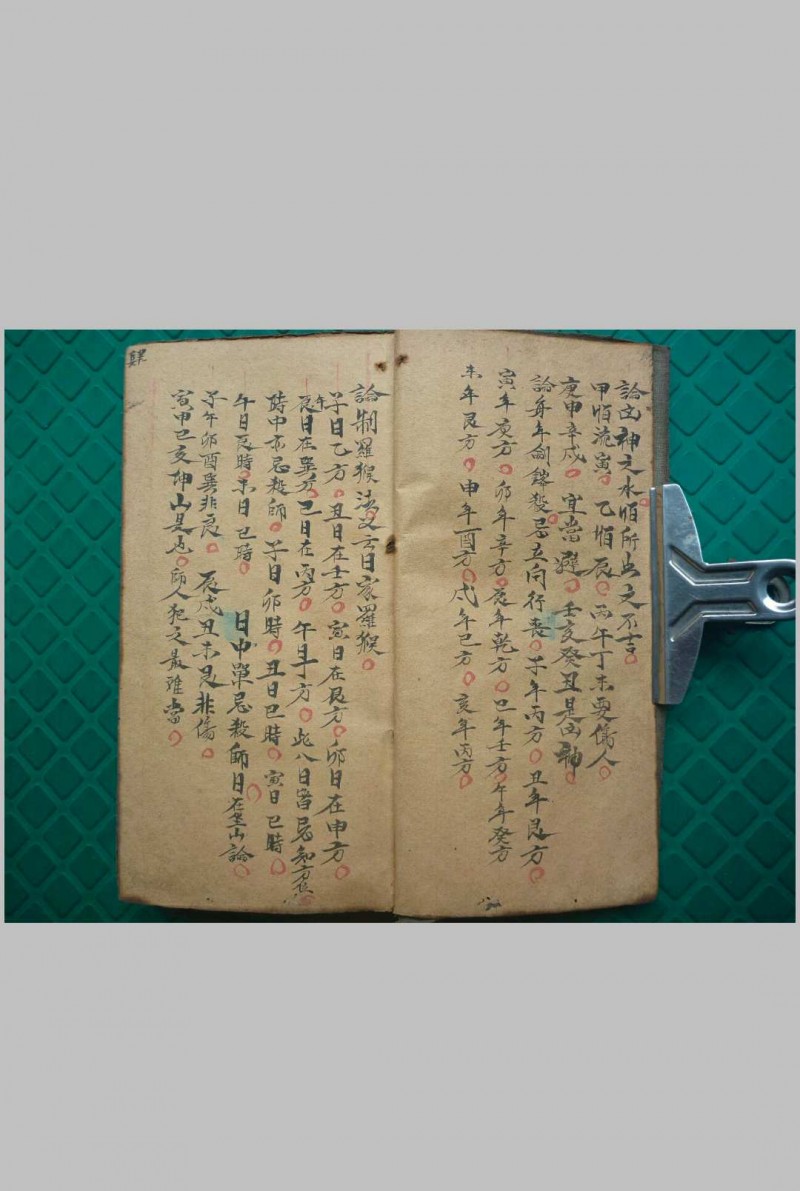 論凶神之水順所出之不吉
甲順流寅 乙順辰 丙午丁未要傷人
庚申辛戌 宜當避 壬亥癸丑是凶神
論身年劍鋒殺忌立向行喪 子年丙方 丑年艮方
寅年庚方 卯年辛方 辰年乾方 巳年壬方 午年癸方
未年艮方 申年酉方 戌年巳方 亥年丙方
論制羅猴法又云日家羅猴
子日乙方 丑日在壬方 寅日在艮方 卯日在申方
午
辰日在巽方 巳日在丙方 午日丁方 此八日當忌
時中亦忌殺師 子日卯時 丑日巳時 寅日巳時
午日辰時 未日巳時 日中單忌殺師日在坐山論
子午卯酉巽非良 辰戌丑未艮非傷
寅申巳亥坤山是也 師人犯之最难當